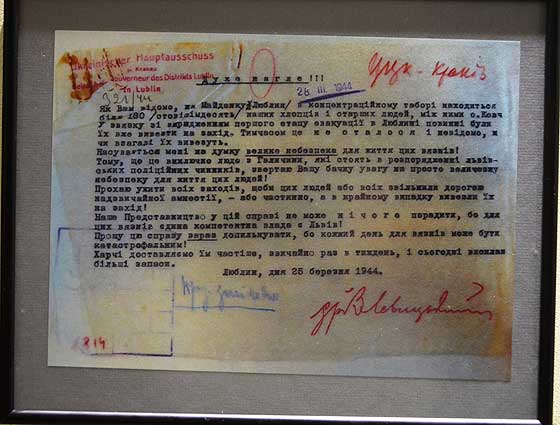 Ukrainischer Hauptausschuss
in Krakau
Gouverneur des Distrikts Lublin
in Lublin
321/44
Дуже нагле!!!
28. III. 1944
УЦК - Краків
Як Вам відомо, на Майданку /Люблин/ в концентраційному таборі находиться
біля 180 /стовісімдесять/ наших хлопців і старших людей, між ними о. Ковч
У звязку зі зарядженням першого етапу евакуації в Люблині повинні були
їх вже вивезти на захід. Тимчасом це не сталося і невідомо, и
чи взагалі їх вивезуть.
Насувається мені на думку велике небезпека для життя цих вязнів!
Тому, що це виключно люде з Галичини, які стоять в розпорядженні львів-
ських поліційних чинників, звертаю Вашу бачну увагу на просто величезну
небезпеку для життя цих людей!
Прохаю ужити всіх заходів, щоби цих людей або всіх звільнили дорогою
надзвичайної амнестії, - або частинно, а в крайному випадку вивезли їх
на захід!
Наше Представництво у цій справі не може нічого порадити, бо для
цих вязнів єдина компетентна влада є Львів!
Прошу цю справу зараз допильнувати, бо кожний день для вязнів може бути
катастрофальним!
Харчі доставляємо їм частіше, звичайно раз в тиждень, і сьогодні вислав
більші запаси.
Люблин, дня 25 березня 1944.
814